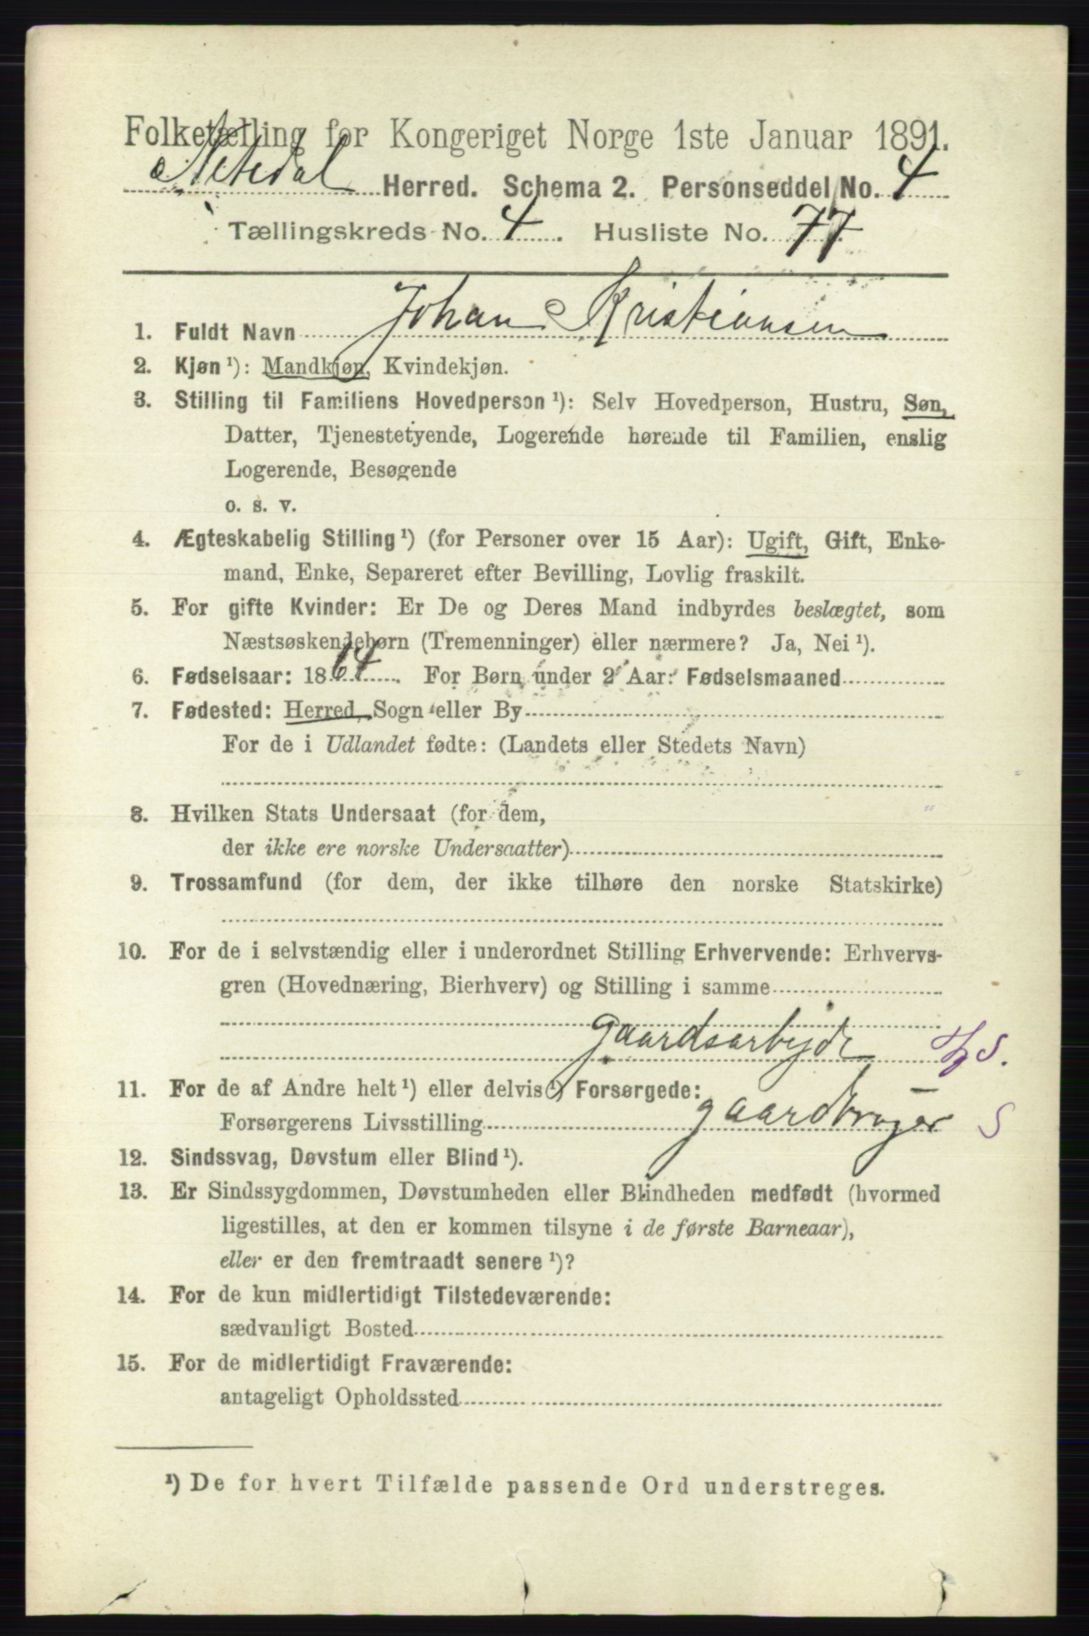 Folketælling for Kongeriget Norge 1ste Januar 1891.
Nitedal Herred. Schema 2. Personseddel No. 4
Tællingskreds No. 4. Husliste No. 77.
1. Fuldt Navn Johan Kristiansen
2. Kjøn ¹): Mandkjøn, Kvindekjøn.
3. Stilling til Familiens Hovedperson ¹): Selv Hovedperson, Hustru, Søn,
Datter, Tjenestetyende, Logerende hørende til Familien, enslig
Logerende, Besøgende
o. s. v.
4. Ægteskabelig Stilling ¹) (for Personer over 15 Aar): Ugift, Gift, Enke-
mand, Enke, Separeret efter Bevilling, Lovlig fraskilt.
5. For gifte Kvinder: Er De og Deres Mand indbyrdes beslægtet, som
Næstsøskendebørn (Tremenninger) eller nærmere? Ja, Nei ¹).
6. Fødselsaar: 1864. For Børn under 2 Aar: Fødselsmaaned
7. Fødested: Herred, Sogn eller By
For de i Udlandet fødte: (Landets eller Stedets Navn)
8. Hvilken Stats Undersaat (for dem,
der ikke ere norske Undersaatter)
9. Trossamfund (for dem, der ikke tilhøre den norske Statskirke)
10. For de i selvstændig eller i underordnet Stilling Erhvervende: Erhvervs-
gren (Hovednæring, Bierhverv) og Stilling i samme
gaardsarbejde
11. For de af Andre helt ¹) eller delvis ¹) Forsørgede:
Forsørgerens Livsstilling gaardbruger S
12. Sindssvag, Døvstum eller Blind ¹).
13. Er Sindssygdommen, Døvstumheden eller Blindheden medfødt (hvormed
ligestilles, at den er kommen tilsyne i de første Barneaar),
eller er den fremtraadt senere ¹)?
14. For de kun midlertidigt Tilstedeværende:
sædvanligt Bosted
15. For de midlertidigt Fraværende:
antageligt Opholdssted
¹) De for hvert Tilfælde passende Ord understreges.